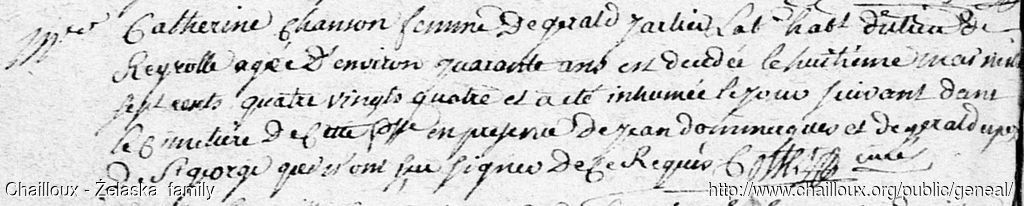 Mre Catherine Chanson femme De gerald Jarlier Labr habt Du lieu de
Reyrolle agée D'environ quarante ans est decedée le huitieme mars mil
sept cents quatre vingts quatre et a eté inhumée le jour suivant dans
le Cimetiere De Cette psse en presence De jean Dommergues et de gerald
De St george qui n'ont scu signer De Ce Requis curé
Chailloux - Żelaska family
http://www.chailloux.org/public/geneal/